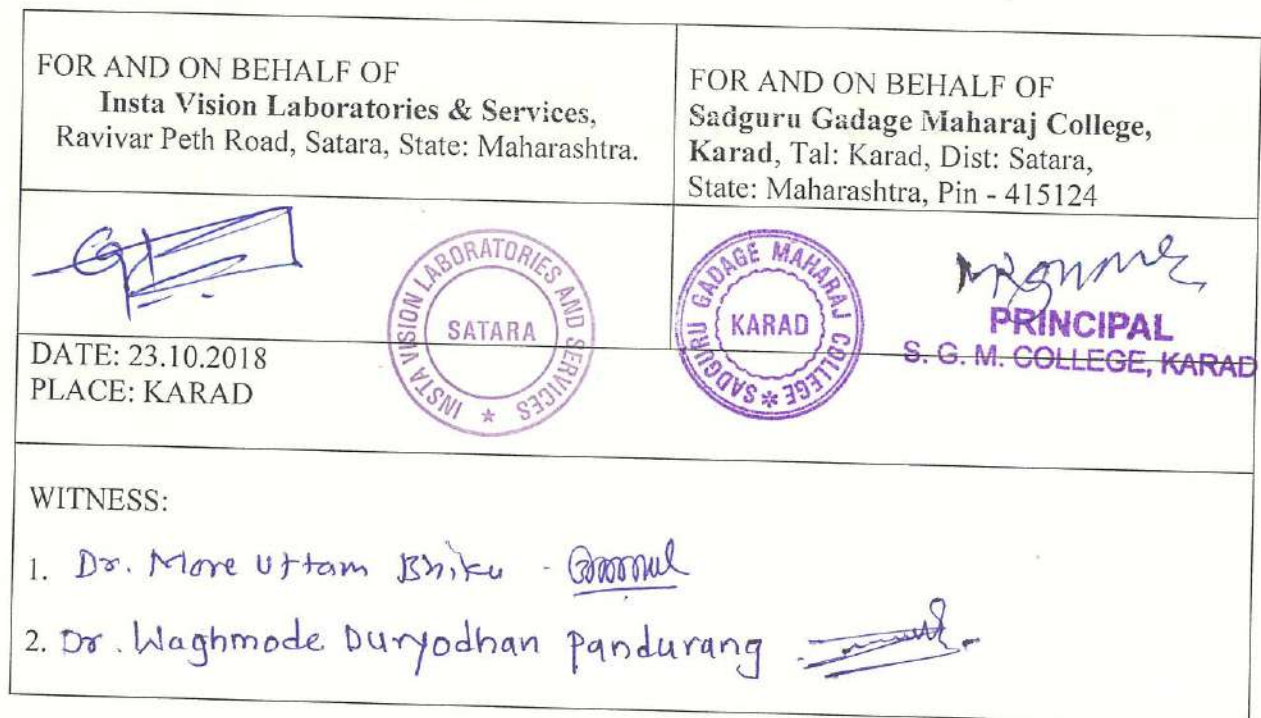 FOR AND ON BEHALF OF
Insta Vision Laboratories & Services,
Ravivar Peth Road, Satara, State: Maharashtra.
FOR AND ON BEHALF OF
Sadguru Gadage Maharaj College,
Karad, Tal: Karad, Dist: Satara,
State: Maharashtra, Pin - 415124
INSTA VISION LABORATORIES AND SERVICES *
SATARA
SADGURU GADAGE MAHARAJ COLLEGE *
KARAD
PRINCIPAL
S. G. M. COLLEGE, KARAD
DATE: 23.10.2018
PLACE: KARAD
WITNESS:
1. Dr. More Uttam Bhiku -
2. Dr. Waghmode Duryodhan Pandurang